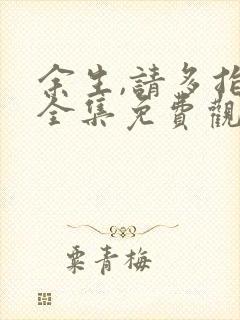 余生,請多指
全集免費觀
粟青梅